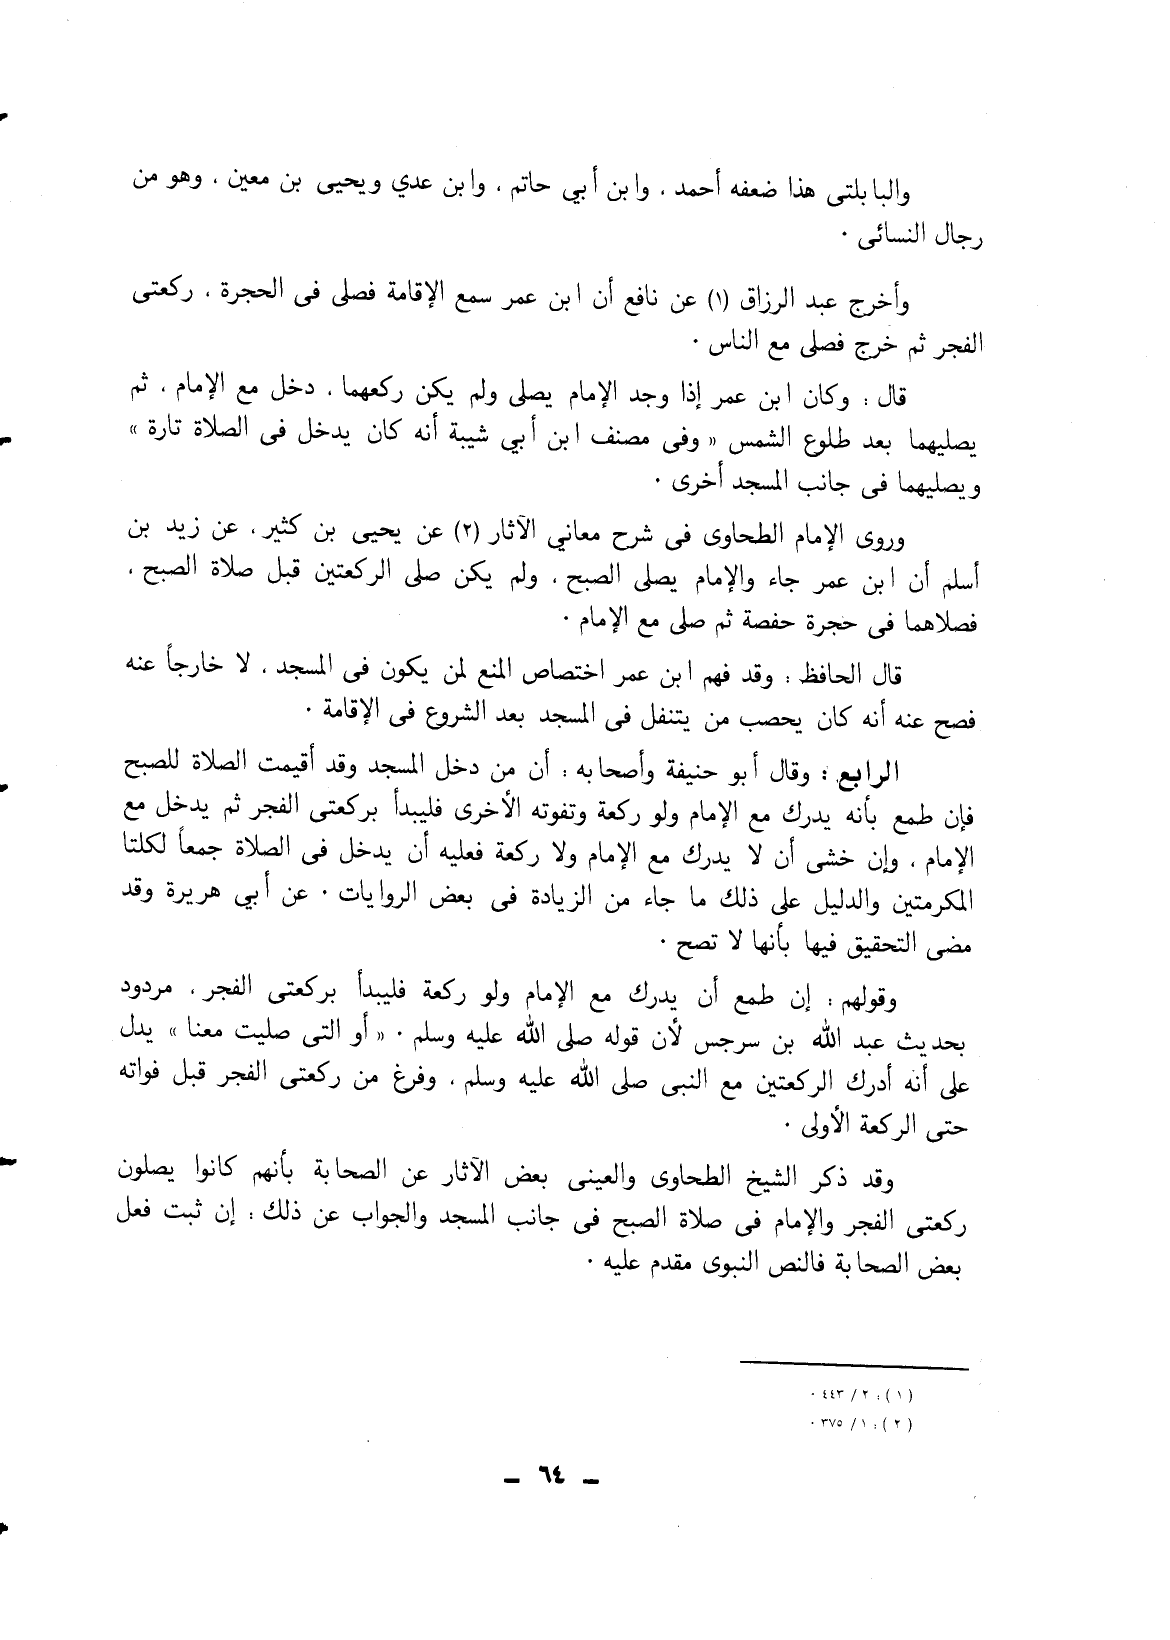 والبابلتى هذا ضعفه أحمد ، وابن أبي حاتم ، وابن عدي ويحيى بن معين ، وهو من
رجال النسائى ٠
وأخرج عبد الرزاق (١) عن نافع أن ابن عمر سمع الإقامة فصلى فى الحجرة ، ركعتى
الفجر ثم خرج فصلى مع الناس ٠
قال : وكان ابن عمر إذا وجد الإمام يصلى ولم يكن ركعهما ، دخل مع الإمام ، ثم
يصليهما بعد طلوع الشمس « وفى مصنف ابن أبي شيبة أنه كان يدخل فى الصلاة تارة »
ويصليهما فى جانب المسجد أخرى ٠
وروى الإمام الطحاوى فى شرح معاني الآثار (٢) عن يحيى بن كثير ، عن زيد بن
أسلم أن ابن عمر جاء والإمام يصلى الصبح ، ولم يكن صلى الركعتين قبل صلاة الصبح ،
فصلاهما فى حجرة حفصة ثم صلى مع الإمام ٠
قال الحافظ : وقد فهم ابن عمر اختصاص المنع لمن يكون فى المسجد ، لا خارجاً عنه
فصح عنه أنه كان يحصب من يتنفل فى المسجد بعد الشروع فى الإقامة ٠
الرابع : وقال أبو حنيفة وأصحابه : أن من دخل المسجد وقد أقيمت الصلاة للصبح
فإن طمع بأنه يدرك مع الإمام ولو ركعة وتفوته الأخرى فليبدأ بركعتى الفجر ثم يدخل مع
الإمام ، وإن خشى أن لا يدرك مع الإمام ولا ركعة فعليه أن يدخل فى الصلاة جمعاً لكلتا
المكرمتين والدليل على ذلك ما جاء من الزيادة فى بعض الروايات ٠ عن أبي هريرة وقد
مضى التحقيق فيها بأنها لا تصح ٠
وقولهم : إن طمع أن يدرك مع الإمام ولو ركعة فليبدأ بركعتى الفجر ، مردود
بحديث عبد الله بن سرجس لأن قوله صلى الله عليه وسلم ٠ « أو التى صليت معنا » يدل
على أنه أدرك الركعتين مع النبى صلى الله عليه وسلم ، وفرغ من ركعتى الفجر قبل فواته
حتى الركعة الأولى ٠
وقد ذكر الشيخ الطحاوى والعينى بعض الآثار عن الصحابة بأنهم كانوا يصلون
ركعتى الفجر والإمام فى صلاة الصبح فى جانب المسجد والجواب عن ذلك : إن ثبت فعل
بعض الصحابة فالنص النبوى مقدم عليه ٠
(١) : ٢ / ٤٤٣ ٠
(٢) : ١ / ٣٧٥ ٠
ــ ٦٤ ــ